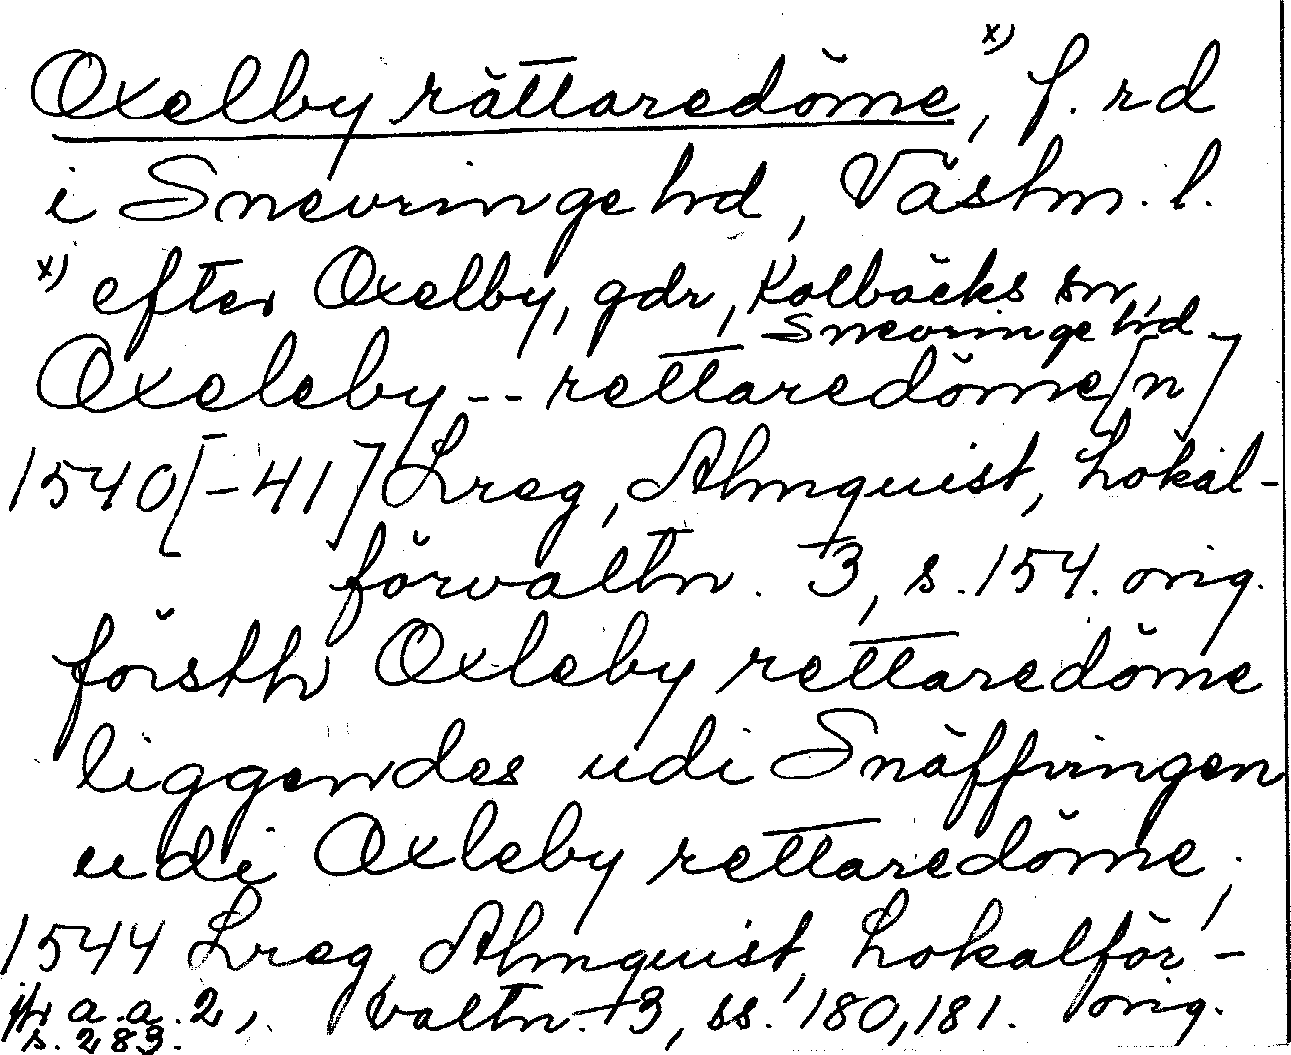 Oxelby rättaredöme, x) f. rd
i Snevringe hd, Västm. l.
x) efter Oxelby, gdr, Kolbäcks sn,
Snevringe hd.
Oxeleby -- rettaredöme[n]
1540[-41] Lreg, Almquist, Lokal-
förvaltn. 3, s. 154. orig.
försth Oxleby rettaredöme
liggendes udi Snäffringen
udi Oxleby rettaredöme;
1544 Lreg, Almquist, Lokalför-
valtn. 3, ss. 180, 181. orig.
jfr a.a. 2,
s. 283.